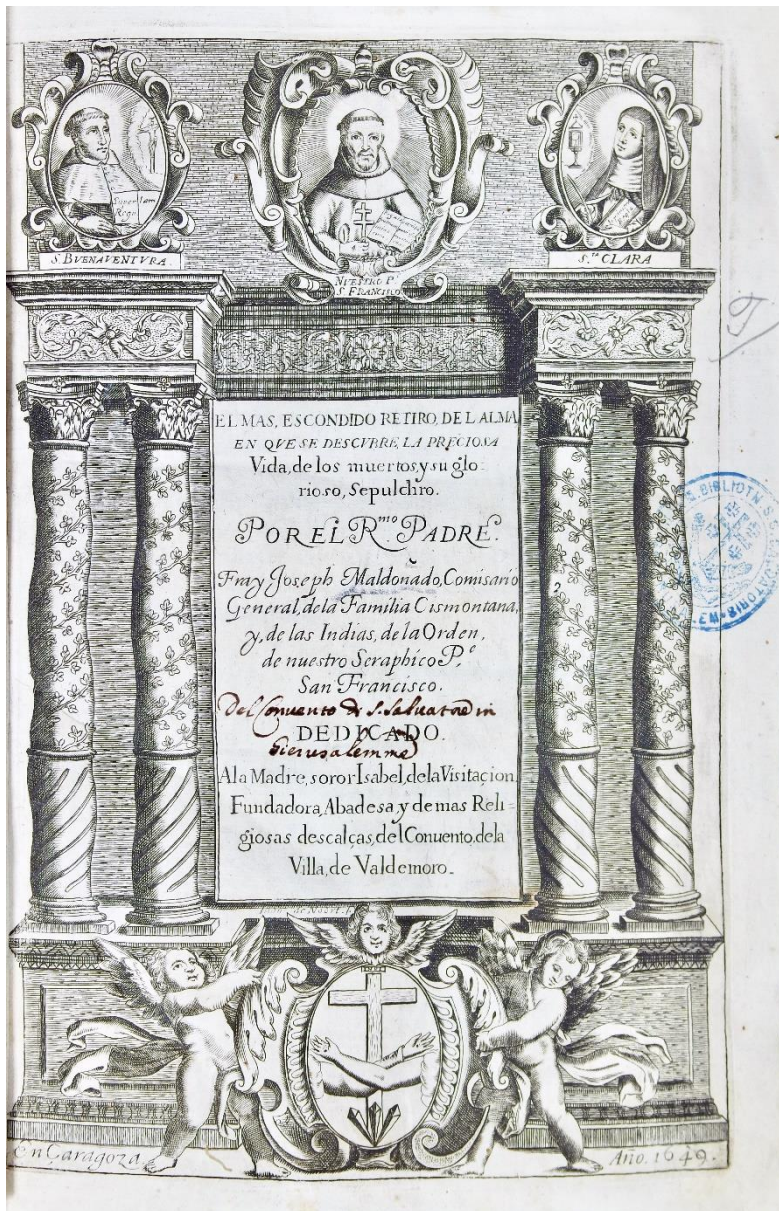 Super Iam
Rege
S. BUENAVENTVRA.
NUESTRO P.
S. FRANCISCO
S.ta CLARA
EL MAS, ESCONDIDO RETIRO, DEL ALMA
EN QVE SE DESCVBRE, LA PRECIOSA
Vida, de los muertos, y su glo-
rioso, Sepulchro.
POR EL R.mo PADRE.
Fray Joseph Maldonado, Comisario
General, de la Familia Cismontana,
y, de las Indias, de la Orden,
de nuestro Seraphico P.e
San Francisco.
Del Conuento di S. Saluatore in
DEDICADO.
Gierusalemme
A la Madre, soror Isabel, de la Visitaçion,
Fundadora, Abadesa, y demas Reli-
giosas descalças, del Conuento, de la
Villa, de Valdemoro.
En Çaragoza
Año. 1649.